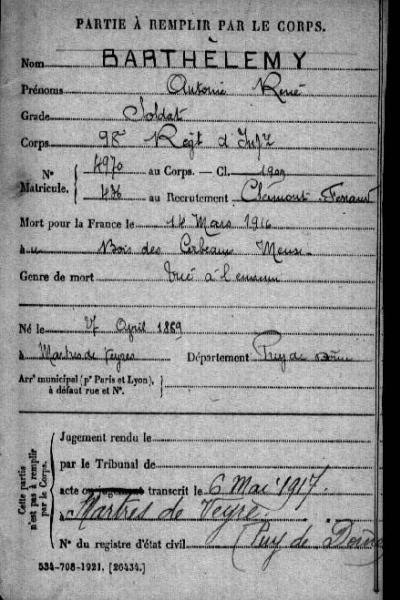 PARTIE À REMPLIR PAR LE CORPS.
Nom BARTHÉLEMY
Prénoms Antoine René
Grade Soldat
Corps 98e Régt d'Infie
N° Matricule. 4970 au Corps. — Cl. 1909
436 au Recrutement Clermont-Ferrand
Mort pour la France le 14 Mars 1916
à Bois des Corbeaux Meuse
Genre de mort Tué à l'ennemi
Né le 27 April 1889
à Martres de Veyre Département Puy de Dôme
Arrt municipal (pr Paris et Lyon), à défaut rue et N°.
Cette partie n'est pas à remplir par le Corps.
Jugement rendu le
par le Tribunal de
acte ou jugement transcrit le 6 Mai 1917.
à Martres de Veyre.
N° du registre d'état civil (Puy de Dôme
534-708-1921. [26434.]